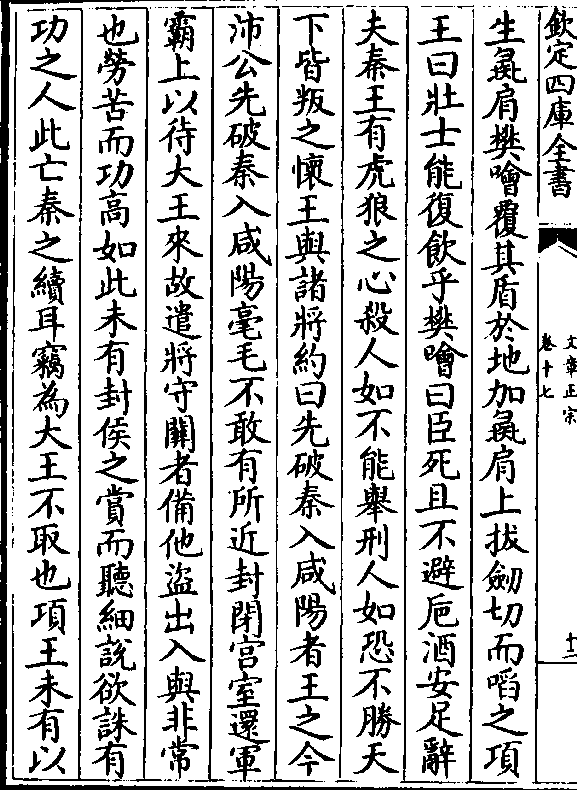 欽定四庫全書
文章正宗
卷十七
十二
生彘肩樊噲覆其盾於地加彘肩上拔劒切而啗之項
王曰壯士能復飲乎樊噲曰臣死且不避卮酒安足辭
夫秦王有虎狼之心殺人如不能舉刑人如恐不勝天
下皆叛之懷王與諸將約曰先破秦入咸陽者王之今
沛公先破秦入咸陽毫毛不敢有所近封閉宫室還軍
霸上以待大王來故遣將守關者備他盜出入與非常
也勞苦而功高如此未有封侯之賞而聽細說欲誅有
功之人此亡秦之續耳竊為大王不取也項王未有以